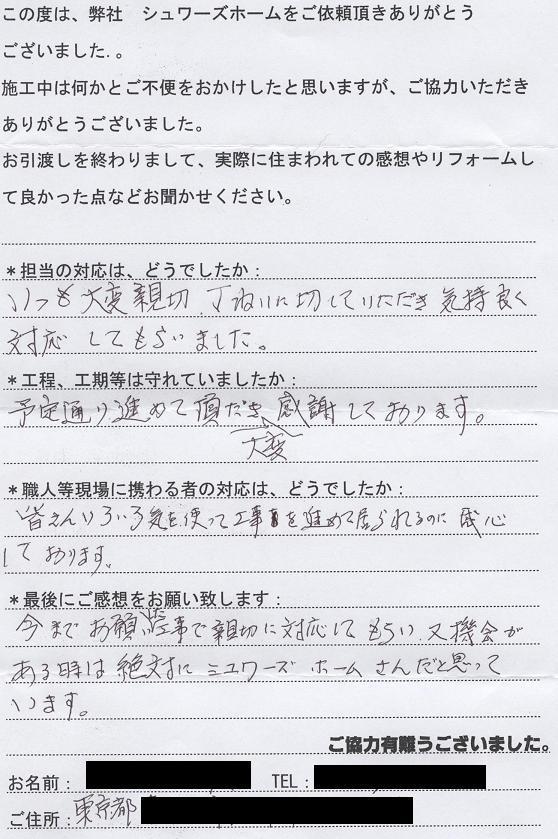 この度は、弊社　シュワーズホームをご依頼頂きありがとう
ございました.。
施工中は何かとご不便をおかけしたと思いますが、ご協力いただき
ありがとうございました。
お引渡しを終わりまして、実際に住まわれての感想やリフォームし
て良かった点などお聞かせください。
＊担当の対応は、どうでしたか：
いつも大変親切、丁ねいに切していただき気持良く
対応してもらいました。
＊工程、工期等は守れていましたか：
予定通り進めて頂だき大変感謝しております。
＊職人等現場に携わる者の対応は、どうでしたか：
皆さんいろいろ気を使って工事を進めて居られるのに感心
しております。
＊最後にご感想をお願い致します：
今までお願いした工事で親切に対応してもらい又機会が
ある時は絶対にミユワーズホームさんだと思って
います。
ご協力有難うございました。
お名前：　TEL：
ご住所：東京都